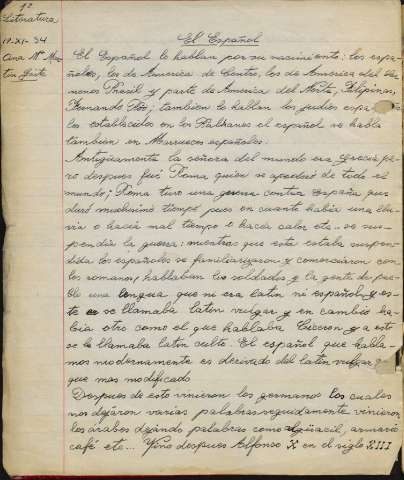 1º
Literatura
19-XI-34
Ana Mª Mar
tín Gaite
El Español
El Español le hablan por su nacimiento: los espa-
ñoles, los de America de Centro, los de America del Sur
menos Brasil y parte de America del Norte, Filipinas,
Fernando Póo, tambien le hablan los judios espa
les establecidos en los Balkanes el español se habla
tambien en Marruecos españoles.
Antiguamente la señora del mundo era Grecia pe-
ro despues fué Roma quien se apoderó de todo el
mundo; Roma tuvo una guerra contra España que
duró muchisimo tiempo pues en cuanto habia una llu-
via o hacia mal tiempo o hacia calor etc. se sus-
pendia la guerra: mientras que esta estaba suspen-
dida los españoles se familiarizaron y comerciaron con
los romanos, hablaban los soldados y la gente del pue-
blo una lengua que ni era latin ni español y es-
te se llamaba latin vulgar y en cambio ha-
bia otro como el que hablaba Ciceron y a este
se le llamaba latin culto. El español que habla-
mos modernamente es derivado del latin vulgar
que mas modificado
Despues de esto vinieron los germanos los cuales
nos dejáron varias palabras seguidamente vinieron
los árabes dejándo palabras como alguacil, armario
café etc... Vino despues Alfonso X en el siglo XIII